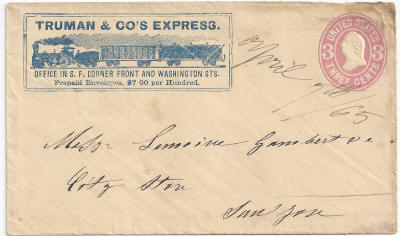 TRUMAN & CO'S EXPRESS.
OFFICE IN S. F. CORNER FRONT AND WASHINGTON STS.
Prepaid Envelopes, $7 00 per Hundred.
UNITED STATES
3 3
THREE CENTS
April /65
Messr Lemoine Gambert
City Stor
San Jose